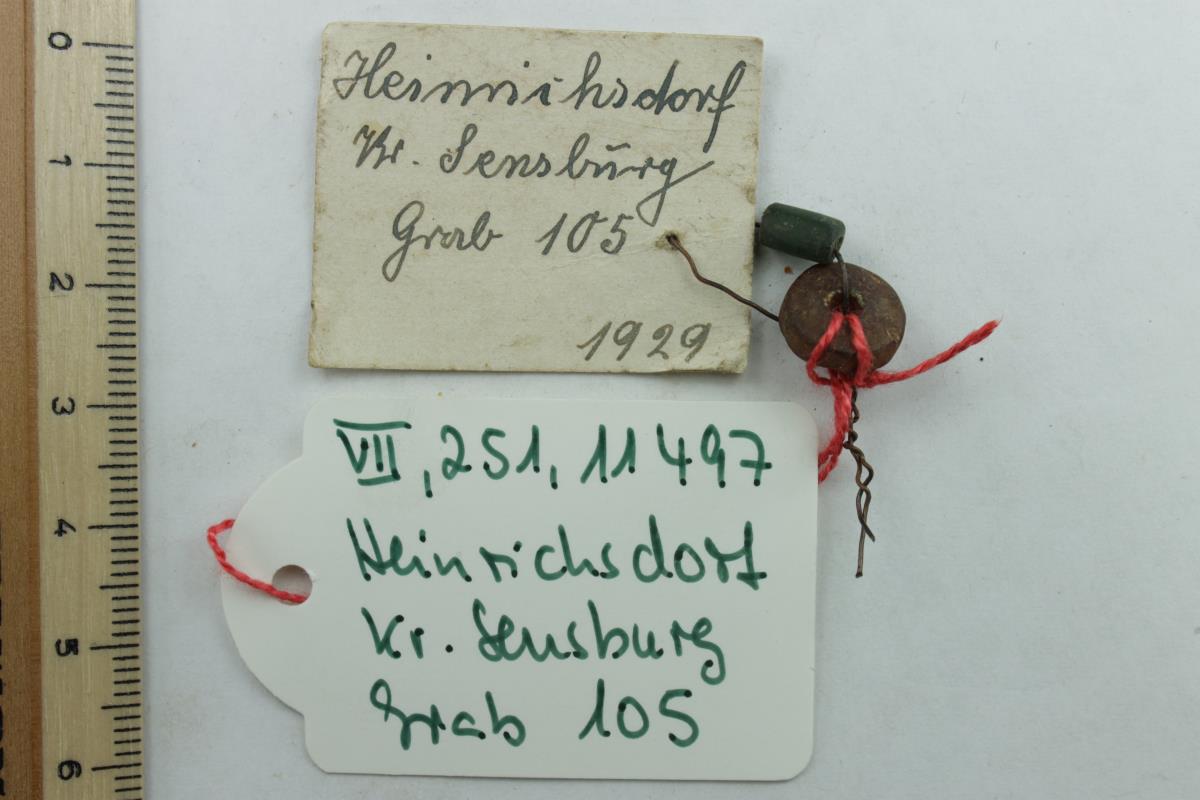 Heinrichsdorf
Kr. Sensbŭrg
Grab 105
1929
VII, 251, 11497
Heinrichsdorf
Kr. Sensburg
Grab 105
0
1
2
3
4
5
6